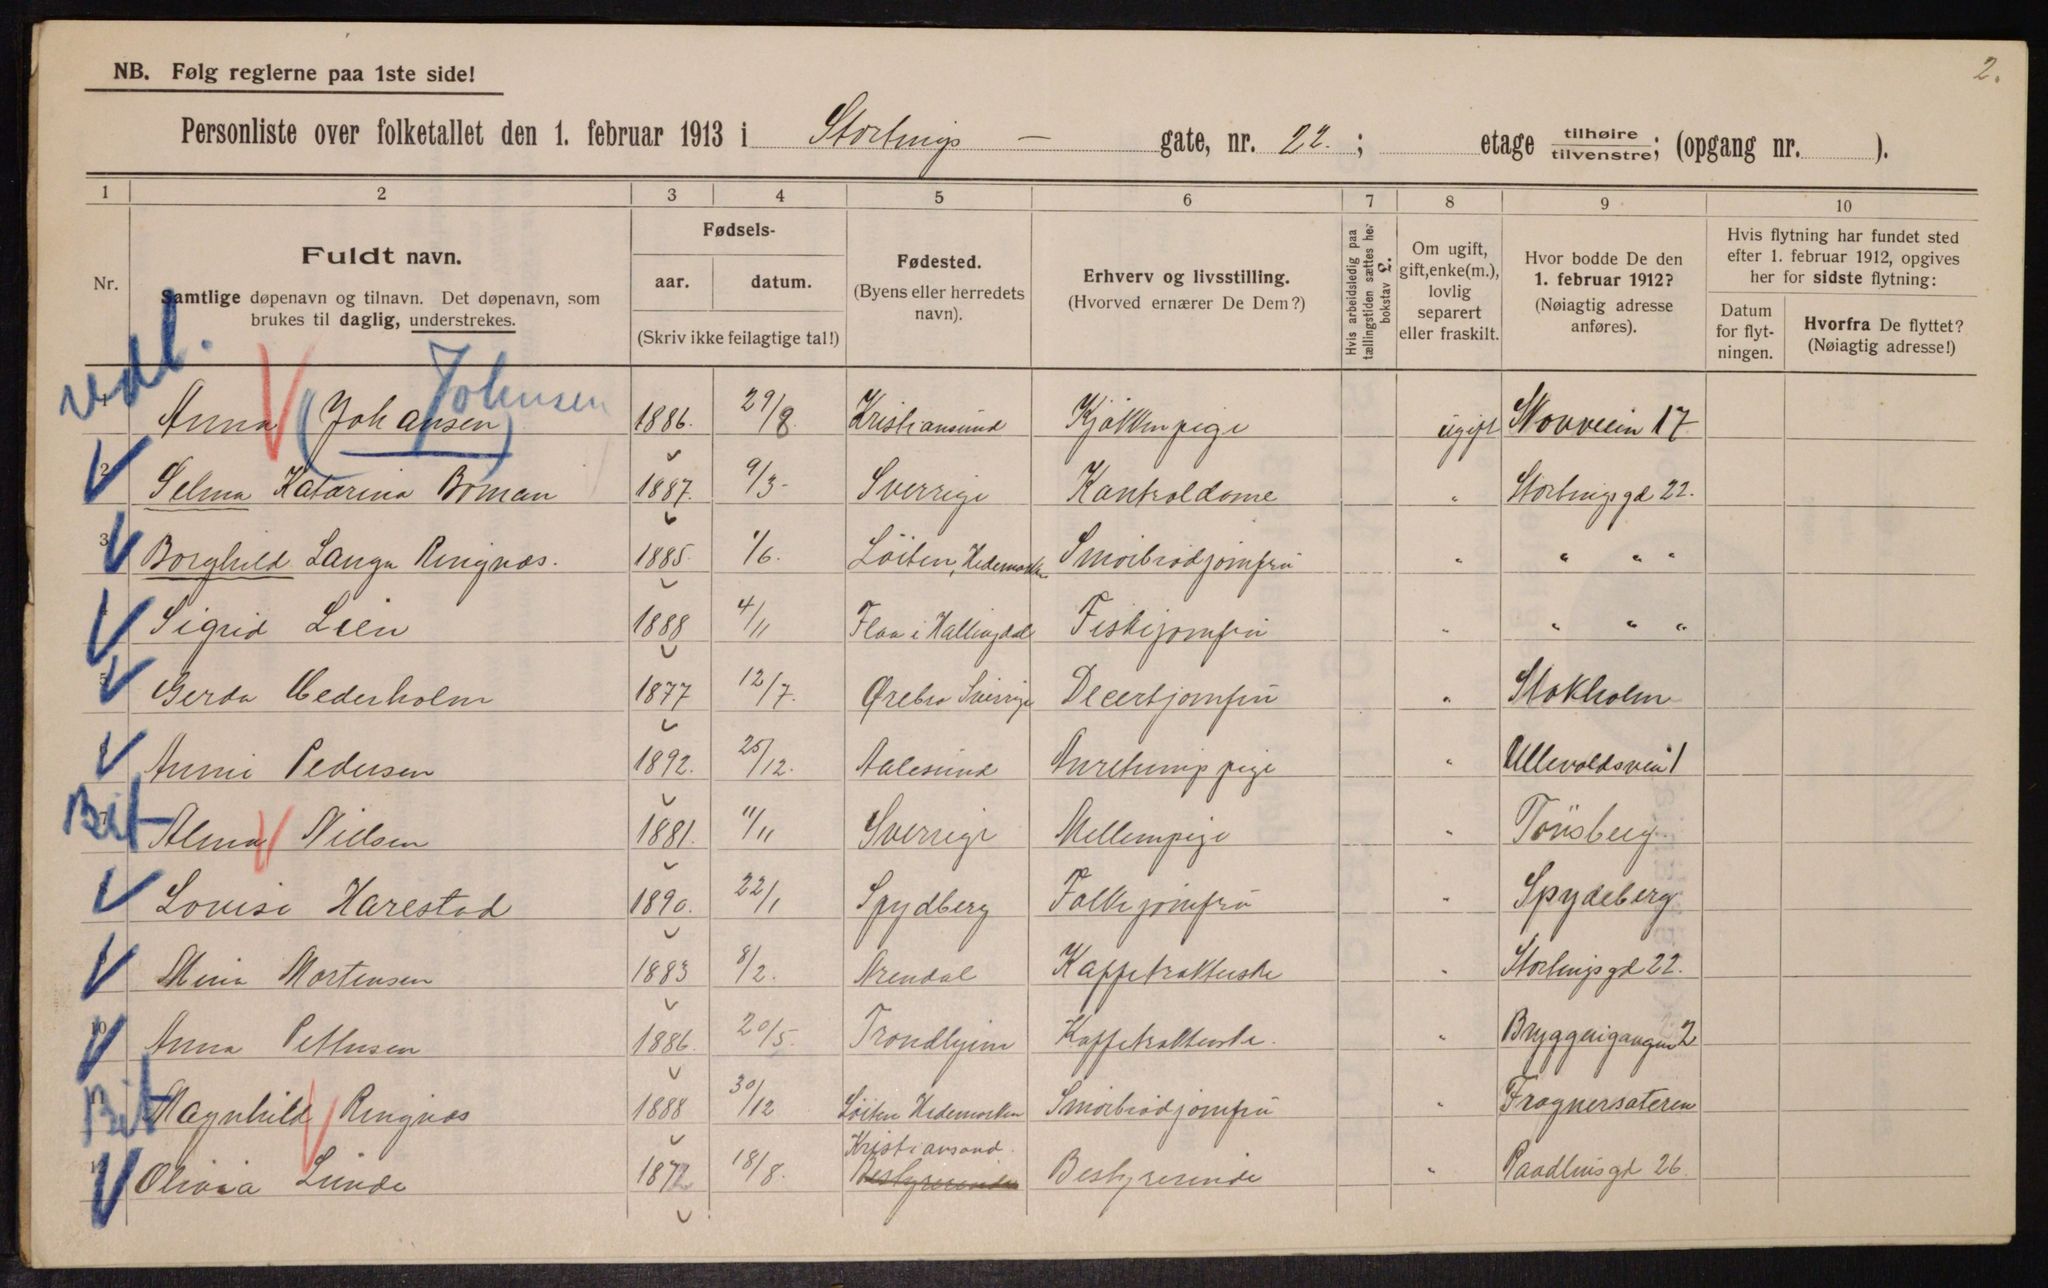 2.
NB. Følg reglerne paa 1ste side!
Personliste over folketallet den 1. februar 1913 i Stortings – gate, nr. 22. ; etage tilhøire/tilvenstre; (opgang nr. ).
1 2 3 4 5 6 7 8 9 10
Nr.
Fuldt navn.
Samtlige døpenavn og tilnavn. Det døpenavn, som
brukes til daglig, understrekes.
Fødsels-
aar. datum.
(Skriv ikke feilagtige tal!)
Fødested.
(Byens eller herredets
navn).
Erhverv og livsstilling.
(Hvorved ernærer De Dem?)
Hvis arbeidsledig paa
tællingstiden sættes her
bokstav L.
Om ugift,
gift, enke(m.),
lovlig
separert
eller fraskilt.
Hvor bodde De den
1. februar 1912?
(Nøiagtig adresse
anføres).
Hvis flytning har fundet sted
efter 1. februar 1912, opgives
her for sidste flytning:
Datum
for flyt-
ningen.
Hvorfra De flyttet?
(Nøiagtig adresse!)
Johnsen
1 Anna (Johansen) 1886. 29/8. Kristiansund Kjøkkenpige ugift Skovveien 17
2 Selma Katarina Boman 1887. 9/3- Sverrige Kontroldame " Stortingsgd 22.
3 Borghild Lange Ringnæs. 1885. 1/6. Löiten, Hedemarken Smörbrödjomfru " " " "
Sigrid Lien 1888 4/11 Flaa i Hallingdal Fiskejomfru " " " "
5 Gerda Cederholm 1877 12/7. Ørebro Sverrige Decertjomfru " Stokholm
Anni Pedersen 1892. 25/12. Aalesund Anretningspige " Ullevoldsvei 1
7 Alma Nielsen 1881. 11/11 Sverrige Mellempige " Tönsberg
Lovise Harestad 1890. 22/1 Spydberg Folkejomfru " Spydeberg
Mina Mortensen 1883 8/2. Arendal Kaffetrakterske " Stortingsgd 22.
10 Anna Pettersen 1886. 20/5. Trondhjem Kaffetrakterske. " Bryggerigangen 2
Magnhild Ringnæs 1888 30/12 Löiten Hedemarken Smörbrödjomfru " Frognersæteren
Kristiansand.
12 Olivia Lunde 1872 18/8. Bestyrerinde Bestyrerinde " Raadhusgd 26